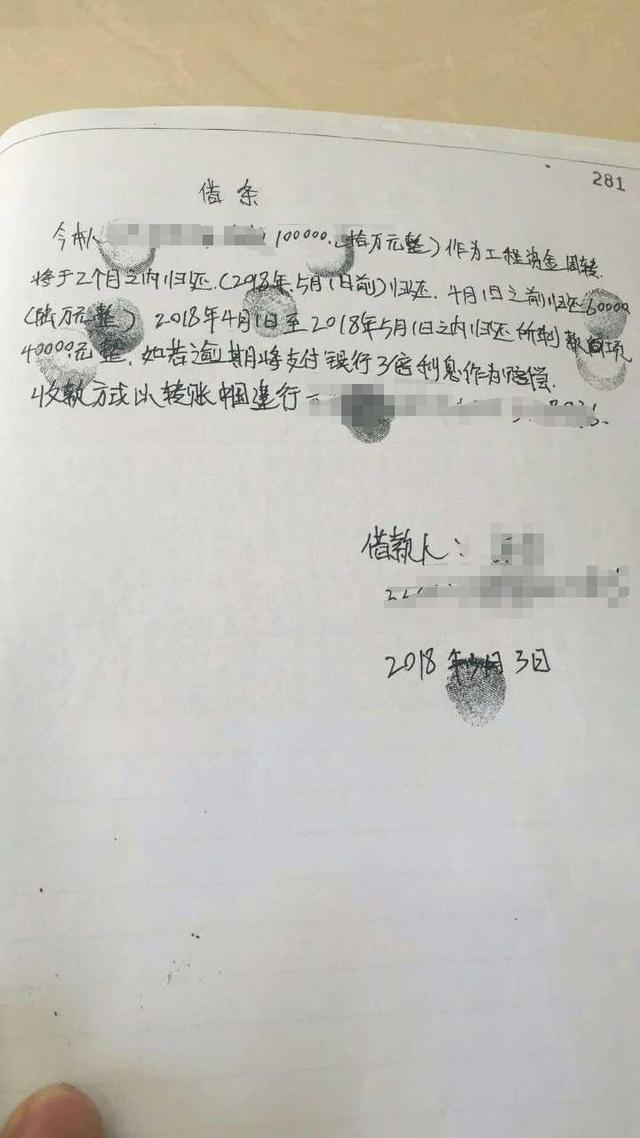 281
借条
今本人 100000.(拾万元整)作为工程资金周转.
将于2个月之内归还.(2018年.5月1日前)归还.4月1日之前归还60000
(陆万元整) 2018年4月1日至2018年5月1日之内归还所剩款项
40000元整.如若逾期将支付银行3倍利息作为赔偿.
收款方式以转账中国建行
借款人:
2018年 月3日